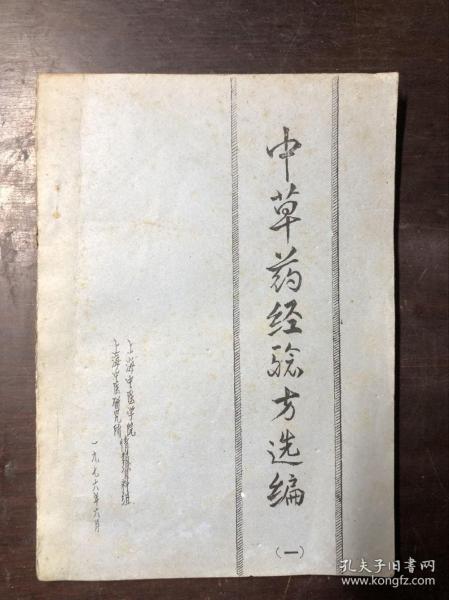 中草药经验方选编
(一)
上海中医学院
上海中医研究所
情报资料组
一九七六年六月
孔夫子旧书网
www.kongfz.com